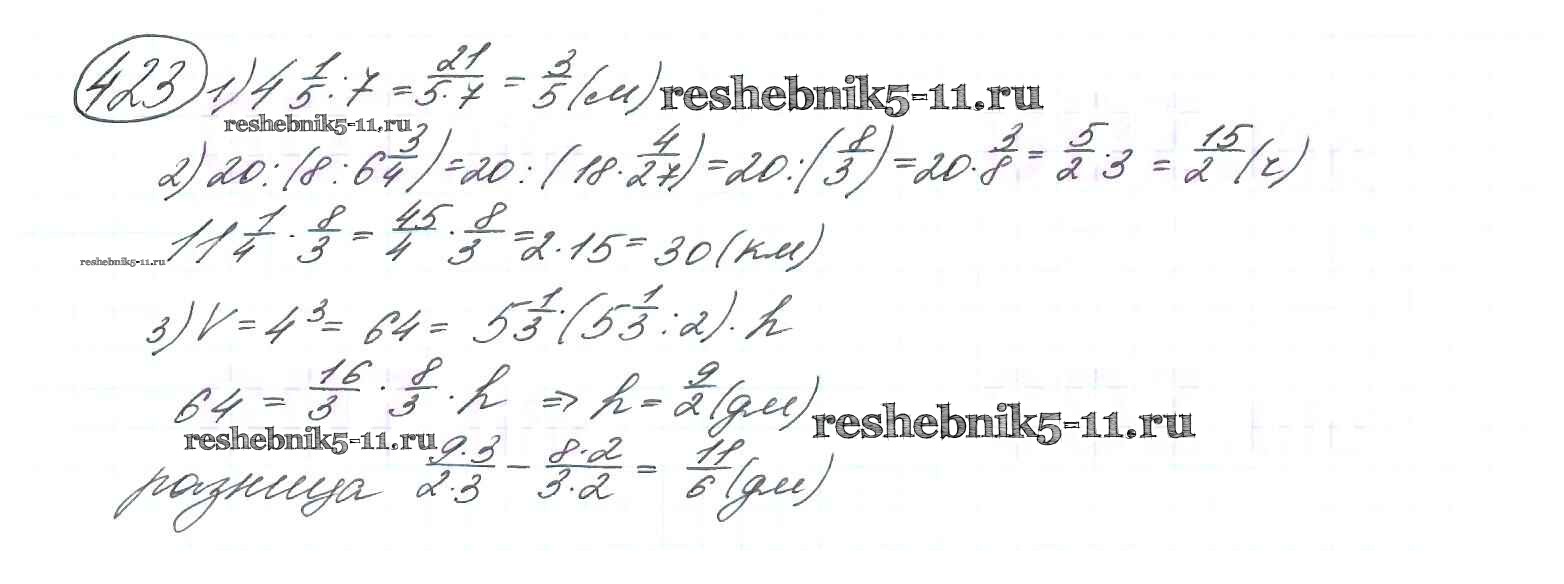 423 1) 4 1/5 : 7 = 21/(5·7) = 3/5 (см) reshebnik5-11.ru
reshebnik5-11.ru
2) 20 : (8 : 6 3/4) = 20 : (18 · 4/27) = 20 : (8/3) = 20 · 3/8 = 5/2 · 3 = 15/2 (ч)
11 1/4 · 8/3 = 45/4 · 8/3 = 2 · 15 = 30 (км)
reshebnik5-11.ru
3) V = 4³ = 64 = 5 1/3 · (5 1/3 : 2) · h
64 = 16/3 · 8/3 · h ⇒ h = 9/2 (дм)
reshebnik5-11.ru reshebnik5-11.ru
разница (9·3)/(2·3) − (8·2)/(3·2) = 11/6 (дм)